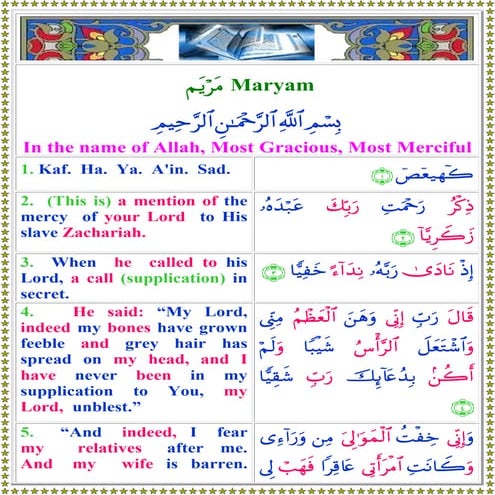 مَرْيَم Maryam
بِسْمِ ٱللَّهِ ٱلرَّحْمَـٰنِ ٱلرَّحِيمِ
In the name of Allah, Most Gracious, Most Merciful
1. Kaf. Ha. Ya. A'in. Sad.
كٓهيعٓصٓ ١
2. (This is) a mention of the
mercy of your Lord to His
slave Zachariah.
ذِكْرُ رَحْمَتِ رَبِّكَ عَبْدَهُۥ
زَكَرِيَّآ ٢
3. When he called to his
Lord, a call (supplication) in
secret.
إِذْ نَادَىٰ رَبَّهُۥ نِدَآءً خَفِيًّا ٣
4. He said: “My Lord,
indeed my bones have grown
feeble and grey hair has
spread on my head, and I
have never been in my
supplication to You, my
Lord, unblest.”
قَالَ رَبِّ إِنِّى وَهَنَ ٱلْعَظْمُ مِنِّى
وَٱشْتَعَلَ ٱلرَّأْسُ شَيْبًا وَلَمْ
أَكُنۢ بِدُعَآئِكَ رَبِّ شَقِيًّا
٤
5. “And indeed, I fear
my relatives after me.
And my wife is barren.
وَإِنِّى خِفْتُ ٱلْمَوَٰلِىَ مِن وَرَآءِى
وَكَانَتِ ٱمْرَأَتِى عَاقِرًا فَهَبْ لِى